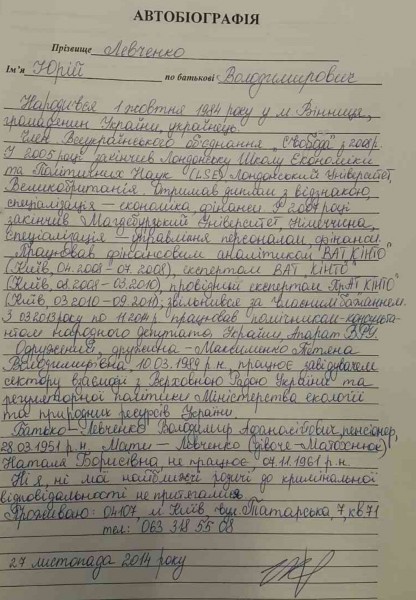 АВТОБІОГРАФІЯ
Прізвище Левченко
Ім'я Юрій по батькові Володимирович
Народився 1 жовтня 1984 року у м Вінниця,
громадянин України, українець.
Член Всеукраїнського об'єднання „Свобода" з 2008р.
У 2005 році закінчив Лондонську Школу Економіки
та Політичних Наук (LSE) Лондонський Університет,
Великобританія. Отримав диплом з відзнакою,
спеціалізація – економіка, фінанси. У 2007 році
закінчив Магдебурзький Університет, Німеччина,
спеціалізація – управління персоналом, фінанси.
Працював фінансовим аналітиком ВАТ „КІНТО"
(Київ, 04.2008 - 07.2008), експертом ВАТ „КІНТО"
(Київ, 08.2008 - 03.2010), провідний експертом ПрАТ „КІНТО"
(Київ, 03.2010 - 09.2010); звільнився за власним бажанням.
З 03 2013 року по 11 2014 р працював помічником-консульта-
нтом народного депутата України, Апарат ВРУ.
Одружений, дружина – Максименко Тетяна
Володимирівна 10.03.1989 р.н. працює завідувачем
сектору взаємодії з Верховною Радою України та
регуляторної політики Міністерства екології
та природних ресурсів України.
Батько – Левченко Володимир пенсіонер,
28.03.1951 р.н. Мати – Левченко (дівоче –
Наталя Борисівна не працює, 07.11.1961 р.н.
Ні я, ні мої найближчі родичі до кримінальної
відповідальності не притягались.
Проживаю: 04107, м Київ, вул Татарська, 7, кв 71
тел: 063 318 55 08
27 листопада 2014 року